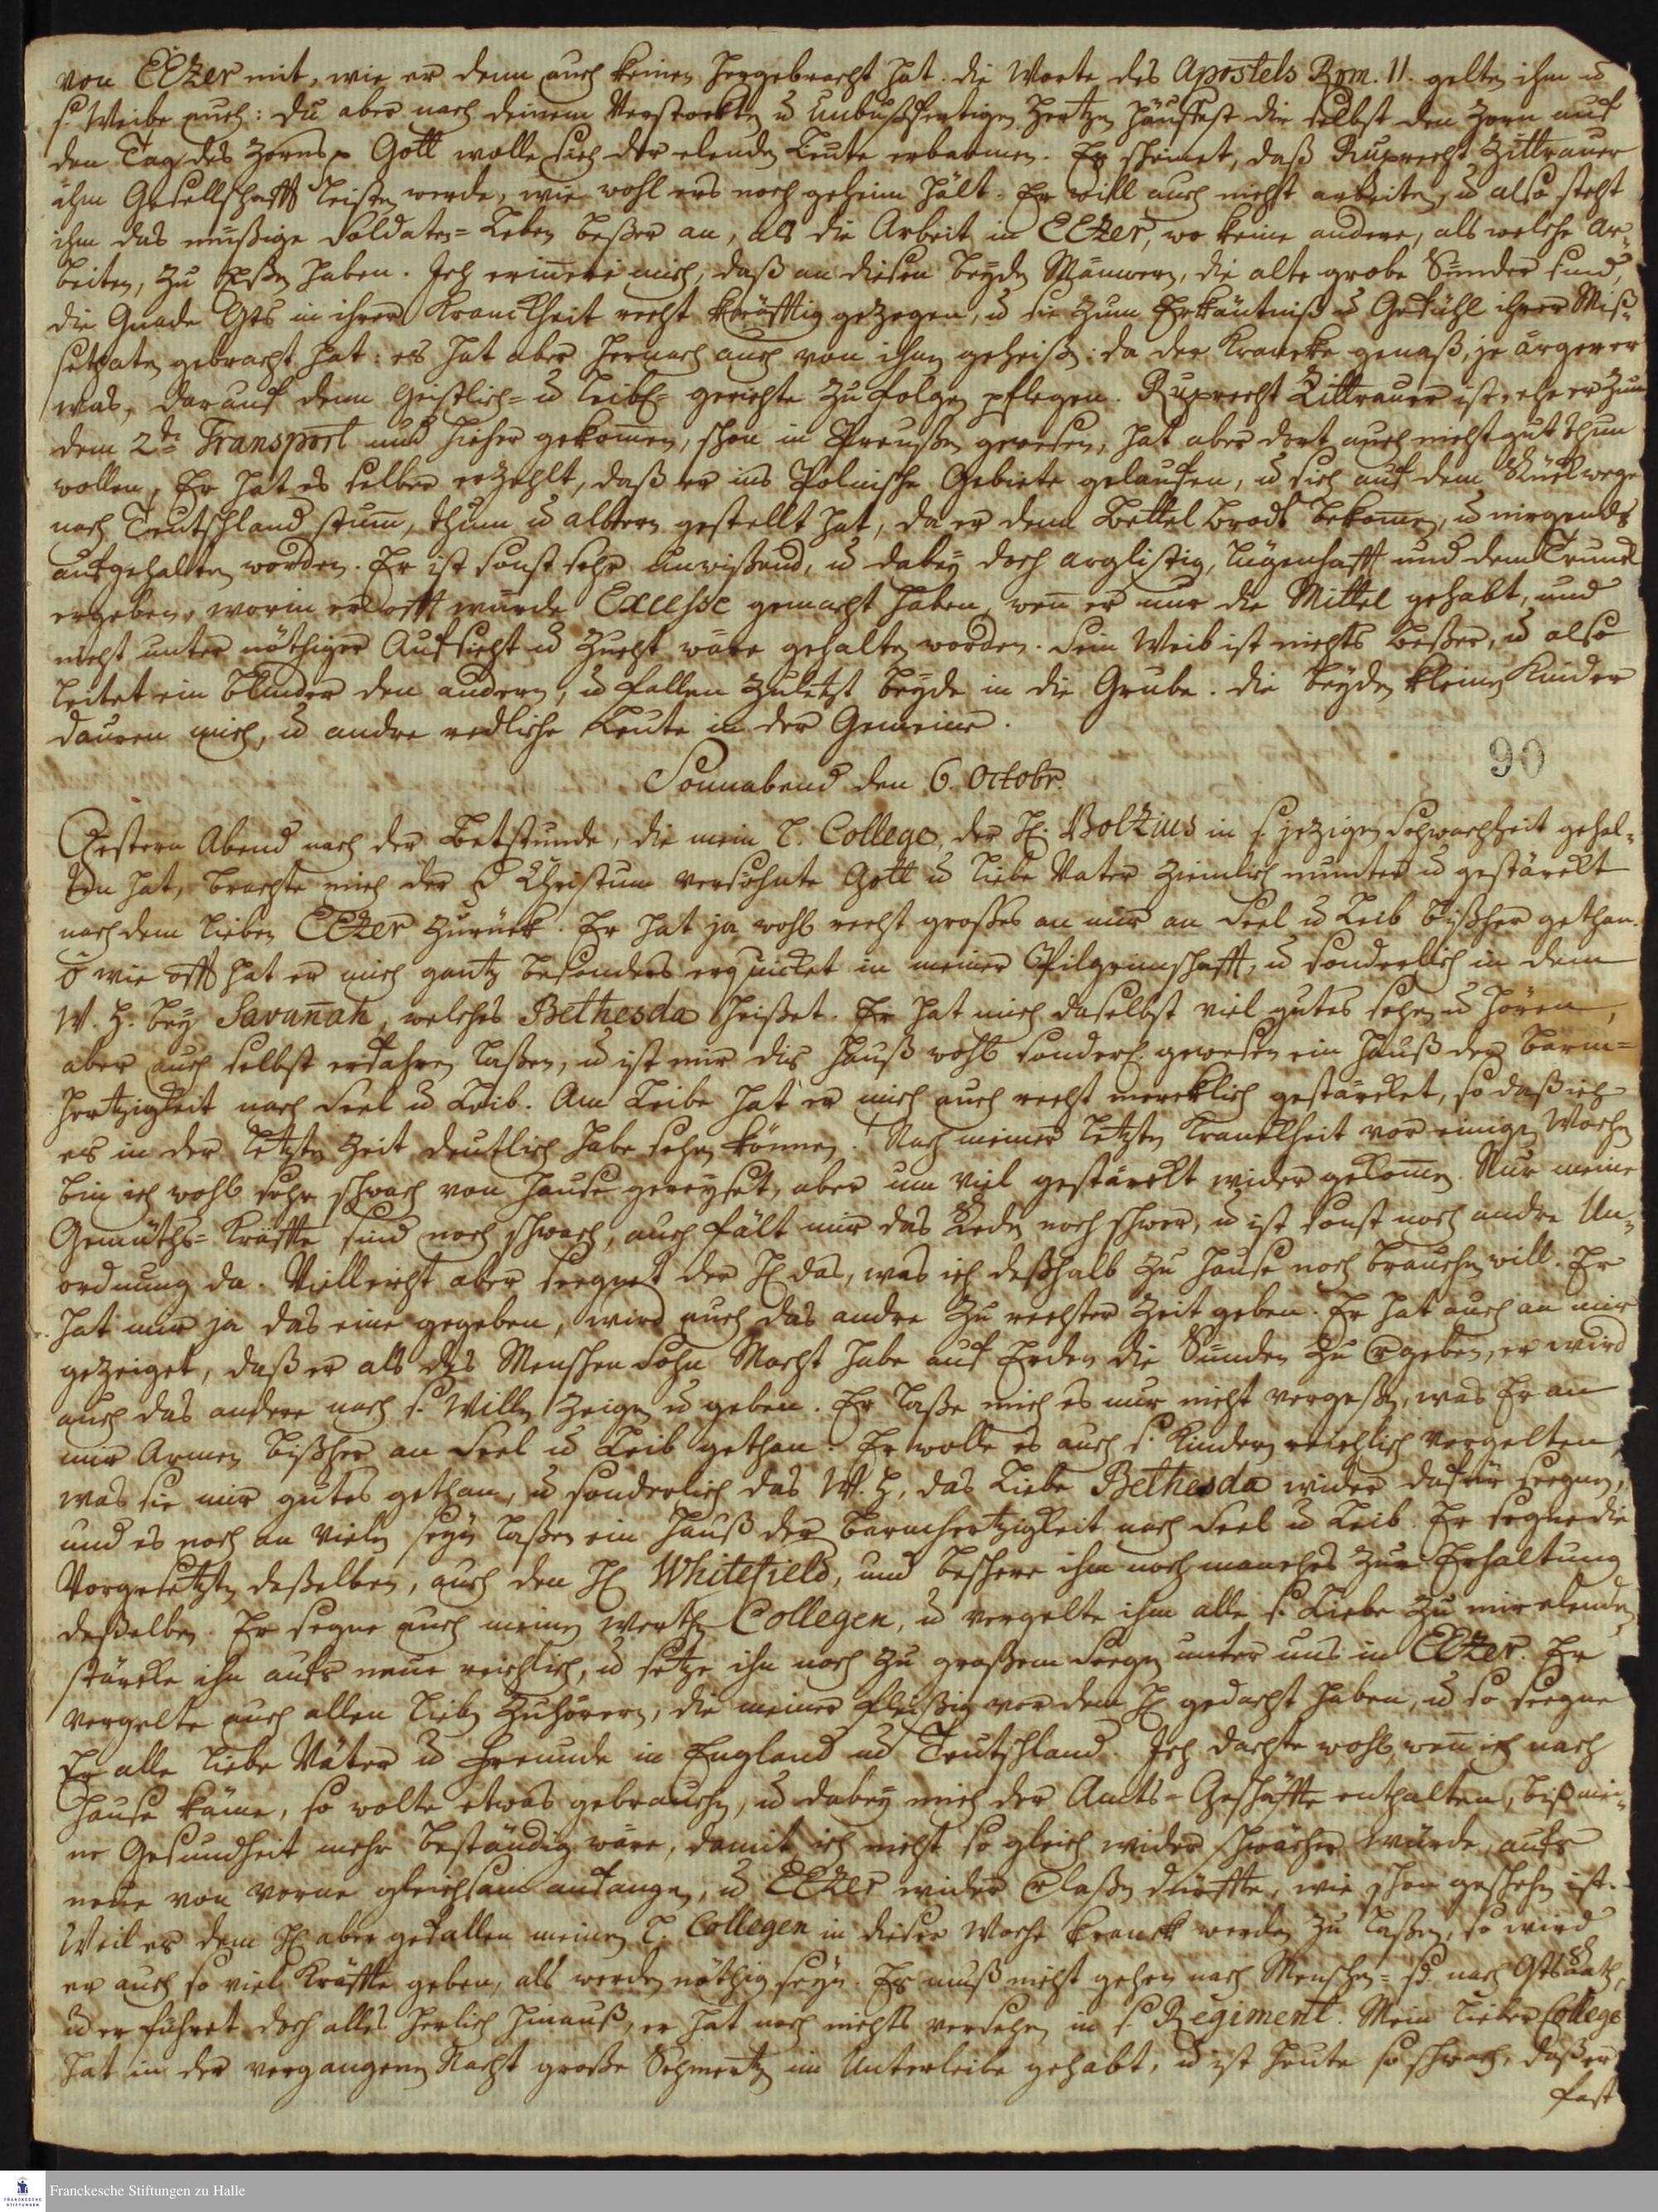 von EEzer mit, wie er denn auch keinen hergebracht hat. die Worte des Apostels Röm. 11. gelten ihm u
s. Weibe auch: du aber nach deinem Verstockten u unbußfertigen Hertzen häuffest dir selbst den Zorn auf
den Tag des Zorns p Gott wolle sich der elenden Leute erbarmen. Es scheinet, daß Ruprecht Zittrauer
ihm Gesellschafft leisten werde, wie wohl ers noch geheim hält. Er will auch nicht arbeiten, u also steht
ihm das müßige Soldaten-Leben beßer an, als die Arbeit in EEzer, wo keine andere, als welche ar-
beiten, zu eßen haben. Ich erinere mich, daß an diesen beyden Mäñern, die alte grobe Sünder sind,
die Gnade Gts in ihrer Kranckheit recht kräfftig gezogen, u sie zum Erkäntniß u Gefühl ihrer Miß-
sethaten gebracht hat: es hat aber hernach auch von ihnen geheißen: da der Krancke genaß, je ärger er
was, darauf denn geistlich- u leibl. gerichte zu folgen pflegen. Ruprecht Zittrauer ist, ehe er zum
dem 2ten Transport und hieher gekomen, schon in Preußen gewesen, hat aber dort auch nicht gut thun
wollen. Er hat es selber erzehlt, daß er ins Polnische Gebiete gelaufen, u sich auf dem Rückwege
nach Teutschland stum, thum u albern gestellt hat, da er denn Bettel Brodt bekomen, u nirgends
aufgehalten worden. Er ist sonst sehr unwißend, u dabey doch arglistig, lügenhafft und dem Trunck
ergeben, worin er offt würde Excesse gemacht haben, wen er nur die Mittel gehabt, und
nicht unter nöthiger Aufsicht u Zucht wäre gehalten worden. Sein Weib ist nichts beßer, u also
leitet ein blinder den andern, u fallen zuletzt beyde in die Grube. die beyden kleinen Kinder
dauren mich, u andre redliche Leute in der Gemeine.
90
Sonnabend den 6. Octobr.
Gestern Abend nach der Betstunde, die mein l. College, der H. Boltzius in s. jezigen Schwachheit gehal-
ten hat, brachte mich der in Christum versöhnte Gott u liebe Vater ziemlich munter u gestärckt
nach dem lieben EEzer zurück. Er hat ja wohl recht großes an mir an Seel u Leib bißher gethan.
ô wie offt hat er mich gantz besonders erquicket in meiner Pilgrimschafft, u sonderlich in dem
W. H. bey Savañah, welches Bethesda heißet. Er hat mich daselbst viel gutes sehen u hören,
aber auch selbst erfahren laßen, u ist mir dis Hauß wohl sonderl. gewesen ein Hauß der Barm-
hertzigkeit nach Seel u Leib. Am Leibe hat er mich auch recht mercklich gestärcket, so daß ich
es in der letzten Zeit deutlich habe sehen können. Nach meiner letzten Kranckheit vor einigen Wochen
bin ich wohl sehr schwach von Hause gereyset, aber um viel gestärckt wider gekomen. Nur meine
Gemüths-Kräffte sind noch schwach, auch fält mir das Reden noch schwer, u ist sonst noch andre Un-
ordnung da. Vielleicht aber seegnet der H das, was ich deßhalb zu Hause noch brauchen will. Er
hat mir ja das eine gegeben, wird auch das andre zu rechter Zeit geben. Er hat auch an mir
gezeiget, daß er als des Menschen Sohn Macht habe auf Erden die Sünden zu vergeben, er wird
auch das andere nach s. Willen zeigen u geben. Er laße mich es nur nicht vergeßen, was Er an
mir Armen bißher an Seel u Leib gethan. Er wolle es auch s. Kindern reichlich vergelten
was sie mir gutes gethan, u sonderlich das W. H. das liebe Bethesda wider dafür seegnen,
und es noch an vielen seyn laßen ein Hauß der Barmhertzigkeit nach Seel u Leib. Er segne die
Vorgesetzten deßelben, auch den H Whitefield, und beschere ihm noch manches zur Erhaltung
deßelben. Er segne auch meinen werthen Collegen, u vergelte ihm alle s. Liebe zu mir elenden,
stärcke ihn aufs neue reichlich, u setze ihn noch zu großem Seegen unter uns in EEzer. Er
vergelte auch allen lieben Zuhörern, die meiner fleißig vor dem H gedacht haben, u so seegne
Er alle liebe Väter u Freunde in England ud Teutschland. Ich dachte wohl, wen ich nach
Hause käme, so wolte etwas gebrauchen, u dabey mich der Amts-Geschäffte enthalten, biß mei-
ne Gesundheit mehr beständig wäre, damit ich nicht so gleich wider schwächer würde, aufs
neue von vorne gleichsam anfangen, u EEzer wider verlaßen dürffte, wie schon geschehen ist.
Weil es dem H aber gefallen meinen l. Collegen in dieser Woche kranck werden zu laßen, so wird
er auch so viel Kräffte geben, als werden nöthig seyn. Es muß nicht gehen nach Menschen- sd. nach Gts Rath,
u er führet doch alles herlich hinauß, er hat noch nichts versehen in s. Regiment. Mein lieber College
hat in der vergangenen Nacht große Schmertzen im Unterleibe gehabt, u ist heute so schwach, daß er
fast
Franckesche Stiftungen zu Halle